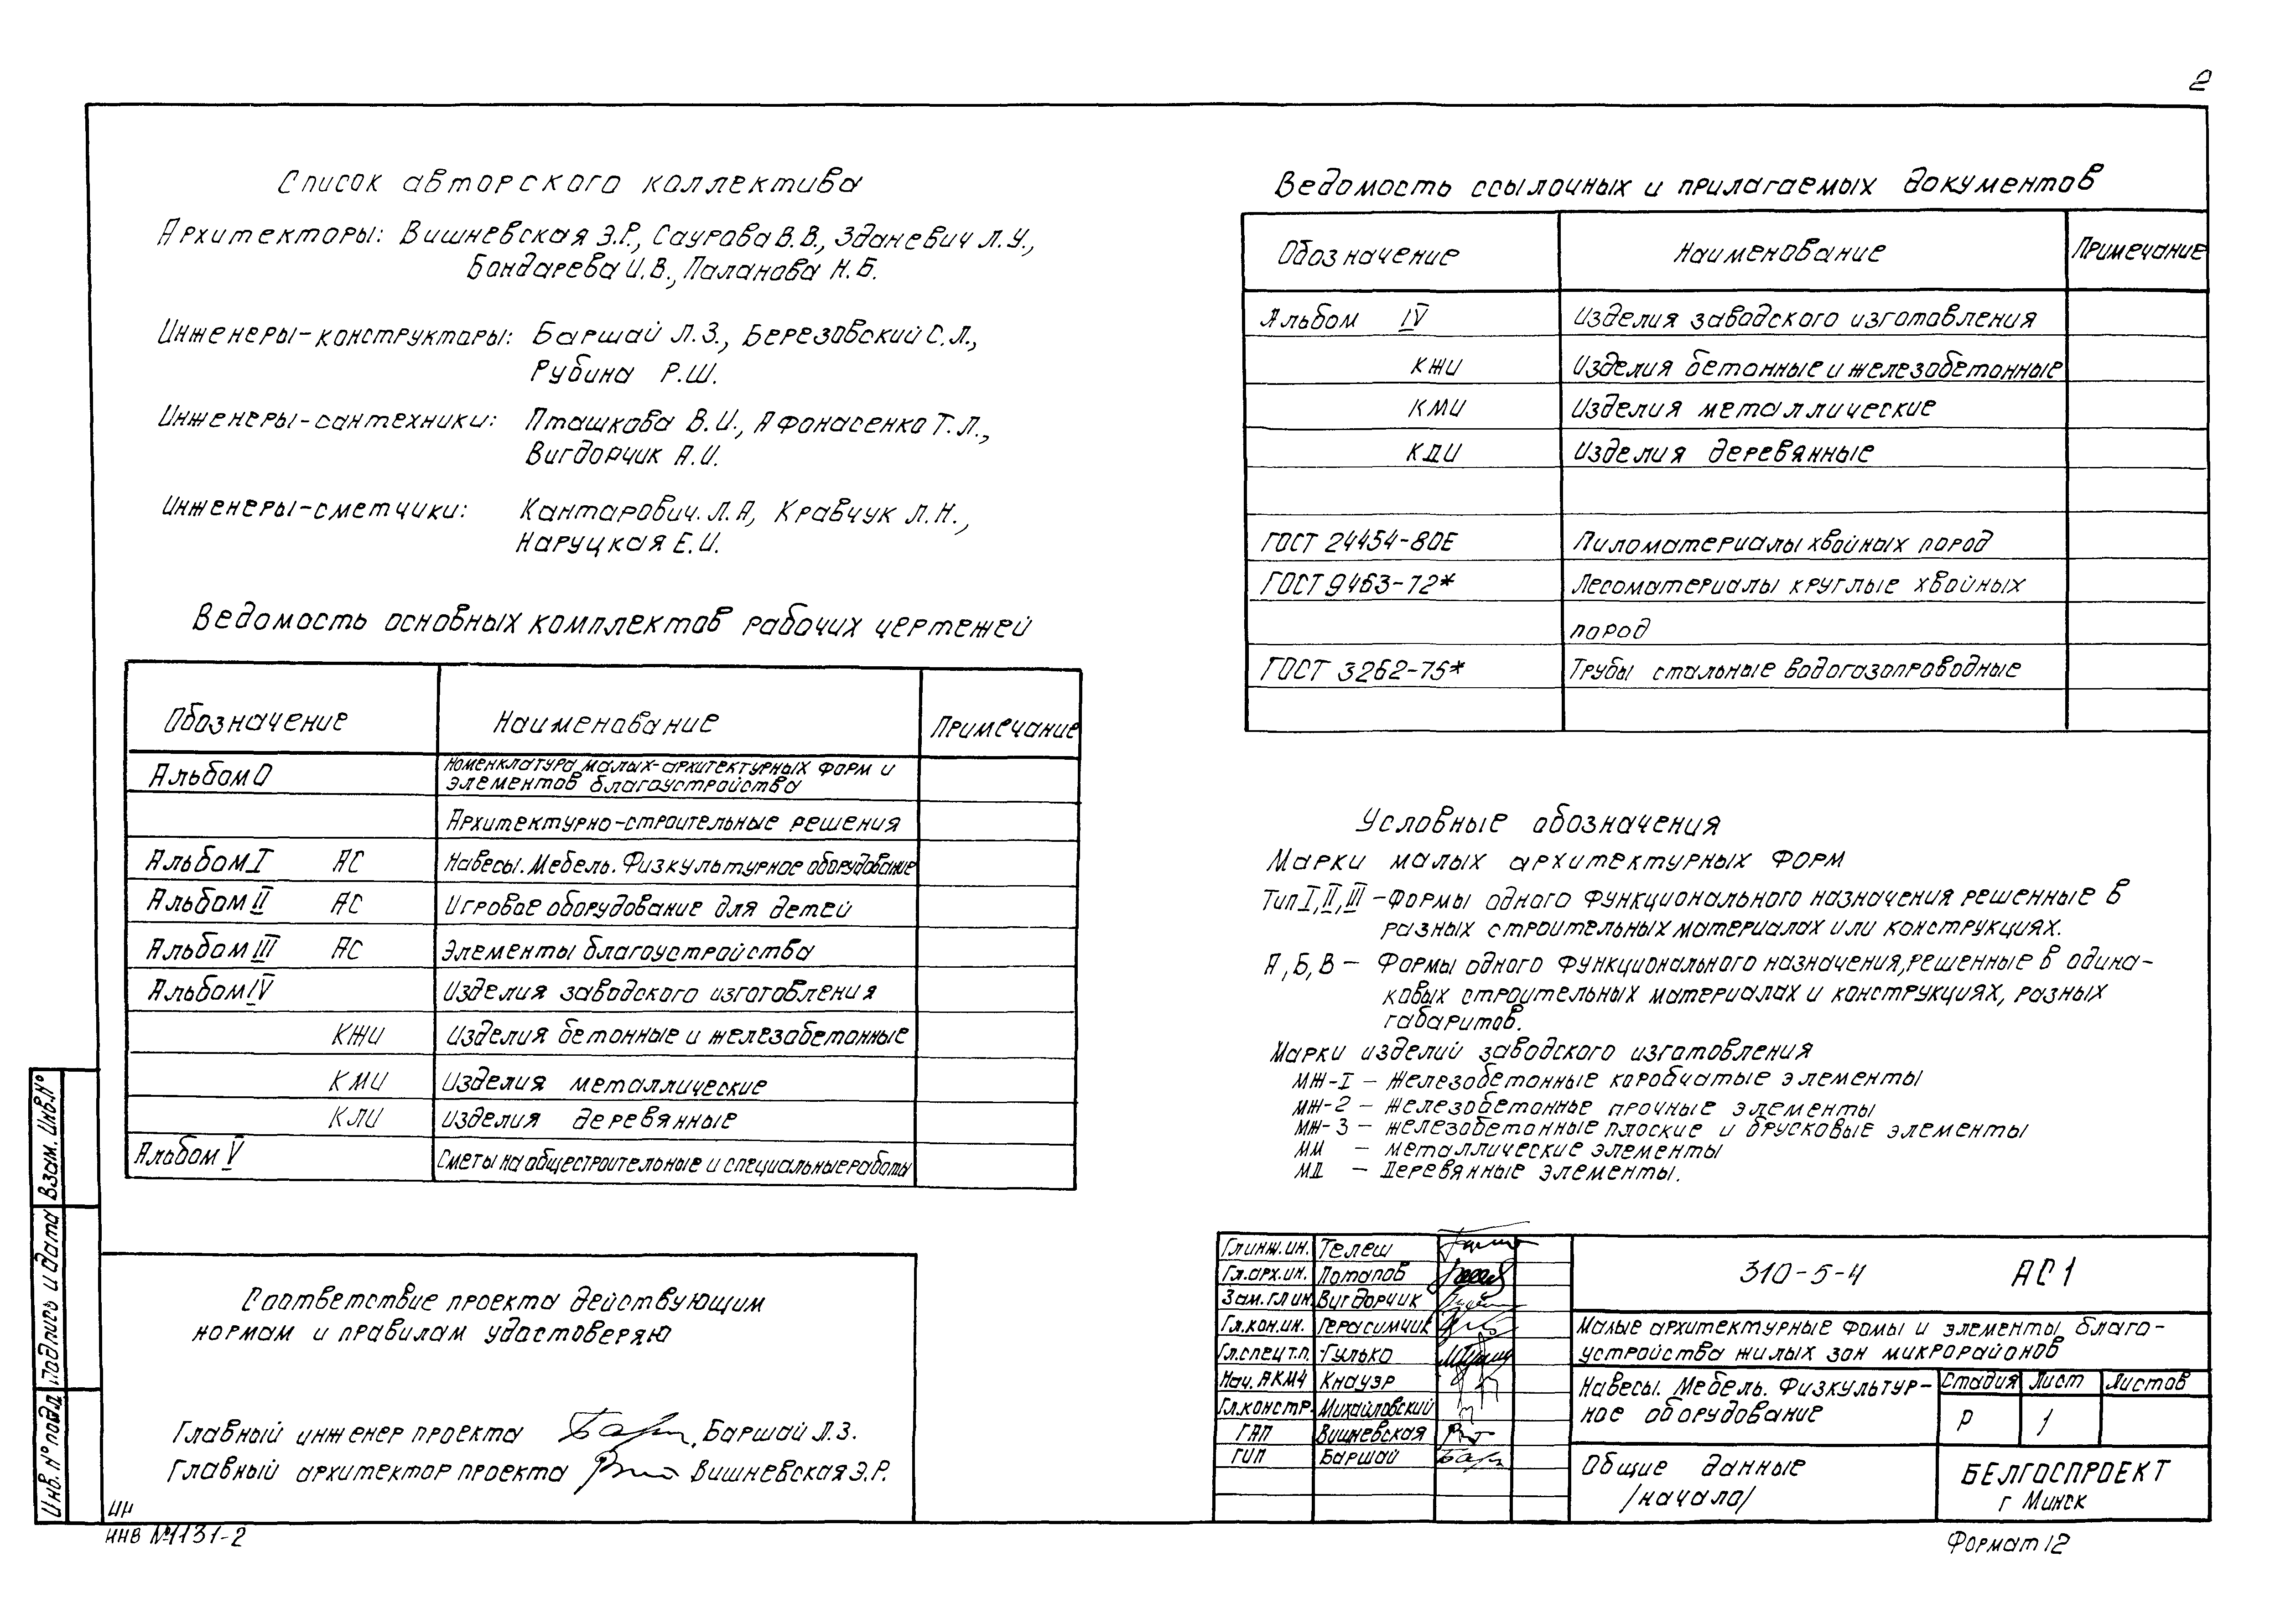 2
Список авторского коллектива
Архитекторы: Вишневская Э.Р., Саурова В.В., Зданевич Л.У.,
Бондарева И.В., Паланова Н.Б.
Инженеры-конструкторы: Баршай Л.З., Березовский С.Л.,
Рубина Р.Ш.
Инженеры-сантехники: Пташкова В.И., Афонасенко Т.Л.,
Вигдорчик А.И.
Инженеры-сметчики: Кантарович. Л.А, Кравчук Л.Н.,
Наруцкая Е.И.
Ведомость основных комплектов рабочих чертежей
Обозначение Наименование Примечание
Альбом 0 Номенклатура малых-архитектурных форм и
элементов благоустройства
Архитектурно-строительные решения
Альбом I АС Навесы. Мебель. Физкультурное оборудование
Альбом II АС Игровое оборудование для детей
Альбом III АС Элементы благоустройства
Альбом IV Изделия заводского изготовления
КЖИ Изделия бетонные и железобетонные
КМИ Изделия металлические
КЛИ Изделия деревянные
Альбом V Сметы на общестроительные и специальные работы
Соответствие проекта действующим
нормам и правилам удостоверяю
Главный инженер проекта Баршай Л.З.
Главный архитектор проекта Вишневская Э.Р.
Ведомость ссылочных и прилагаемых документов
Обозначение Наименование Примечание
Альбом IV Изделия заводского изготовления
КЖИ Изделия бетонные и железобетонные
КМИ Изделия металлические
КДИ Изделия деревянные
ГОСТ 24454-80Е Пиломатериалы хвойных пород
ГОСТ 9463-72* Лесоматериалы круглые хвойных
пород
ГОСТ 3262-75* Трубы стальные водогазопроводные
Условные обозначения
Марки малых архитектурных форм
Тип I, II, III - Формы одного функционального назначения решенные в
разных строительных материалах или конструкциях.
А, Б, В - Формы одного функционального назначения, решенные в одина-
ковых строительных материалах и конструкциях, разных
габаритов.
Марки изделий заводского изготовления
МЖ-1 - Железобетонные коробчатые элементы
МЖ-2 - Железобетонные прочные элементы
МЖ-3 - железобетонные плоские и брусковые элементы
ММ - металлические элементы
МД - Деревянные элементы.
Гл.инж.ин. Телеш
Гл.арх.ин. Потапов
Зам.гл.ин Вигдорчик
Гл.кон.ин. Герасимчик
Гл.спец.т.п. Гулько
Нач. АКМ4 Кнауэр
Гл.констр. Михайловский
ГАП Вишневская
ГИП Баршай
310-5-4 АС1
Малые архитектурные фомы и элементы благо-
устройства жилых зон микрорайонов
Навесы. Мебель. Физкультур-
ное оборудование
Стадия Лист Листов
Р 1
Общие данные
/начало/
БЕЛГОСПРОЕКТ
г Минск
Взам. Инв.№
Подпись и дата
Инв.№ подд.
ИНВ №1131-2
Формат 12